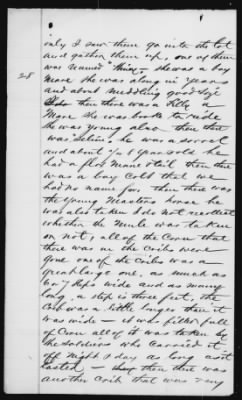 only I saw them go into the lot
and gather them up, one of them
was named "                " she was a bay
28
Mare she was along in years
and about middling good size
then there was a Filly a
Mare she was broke to ride
she was young also then there
was            he was a sorrel
and about        years old he
had a flax Mane & tail then there
was a bay Colt that we
had no name for, then there was
the young Masters horse he
was also taken I do not recollect
whether the Mule was taken
or not, all of the Corn that
there was in the Cribs were
gone one of the Cribs was a
great large one, as much as
6 or 7 steps wide and as many
long, a step is three feet, the
Crib was a little longer than it
was wide – it was filled full
of Corn all of it was taken by
the Soldiers who carried it
off Night & day as long as it
lasted – then there was
another Crib that was very